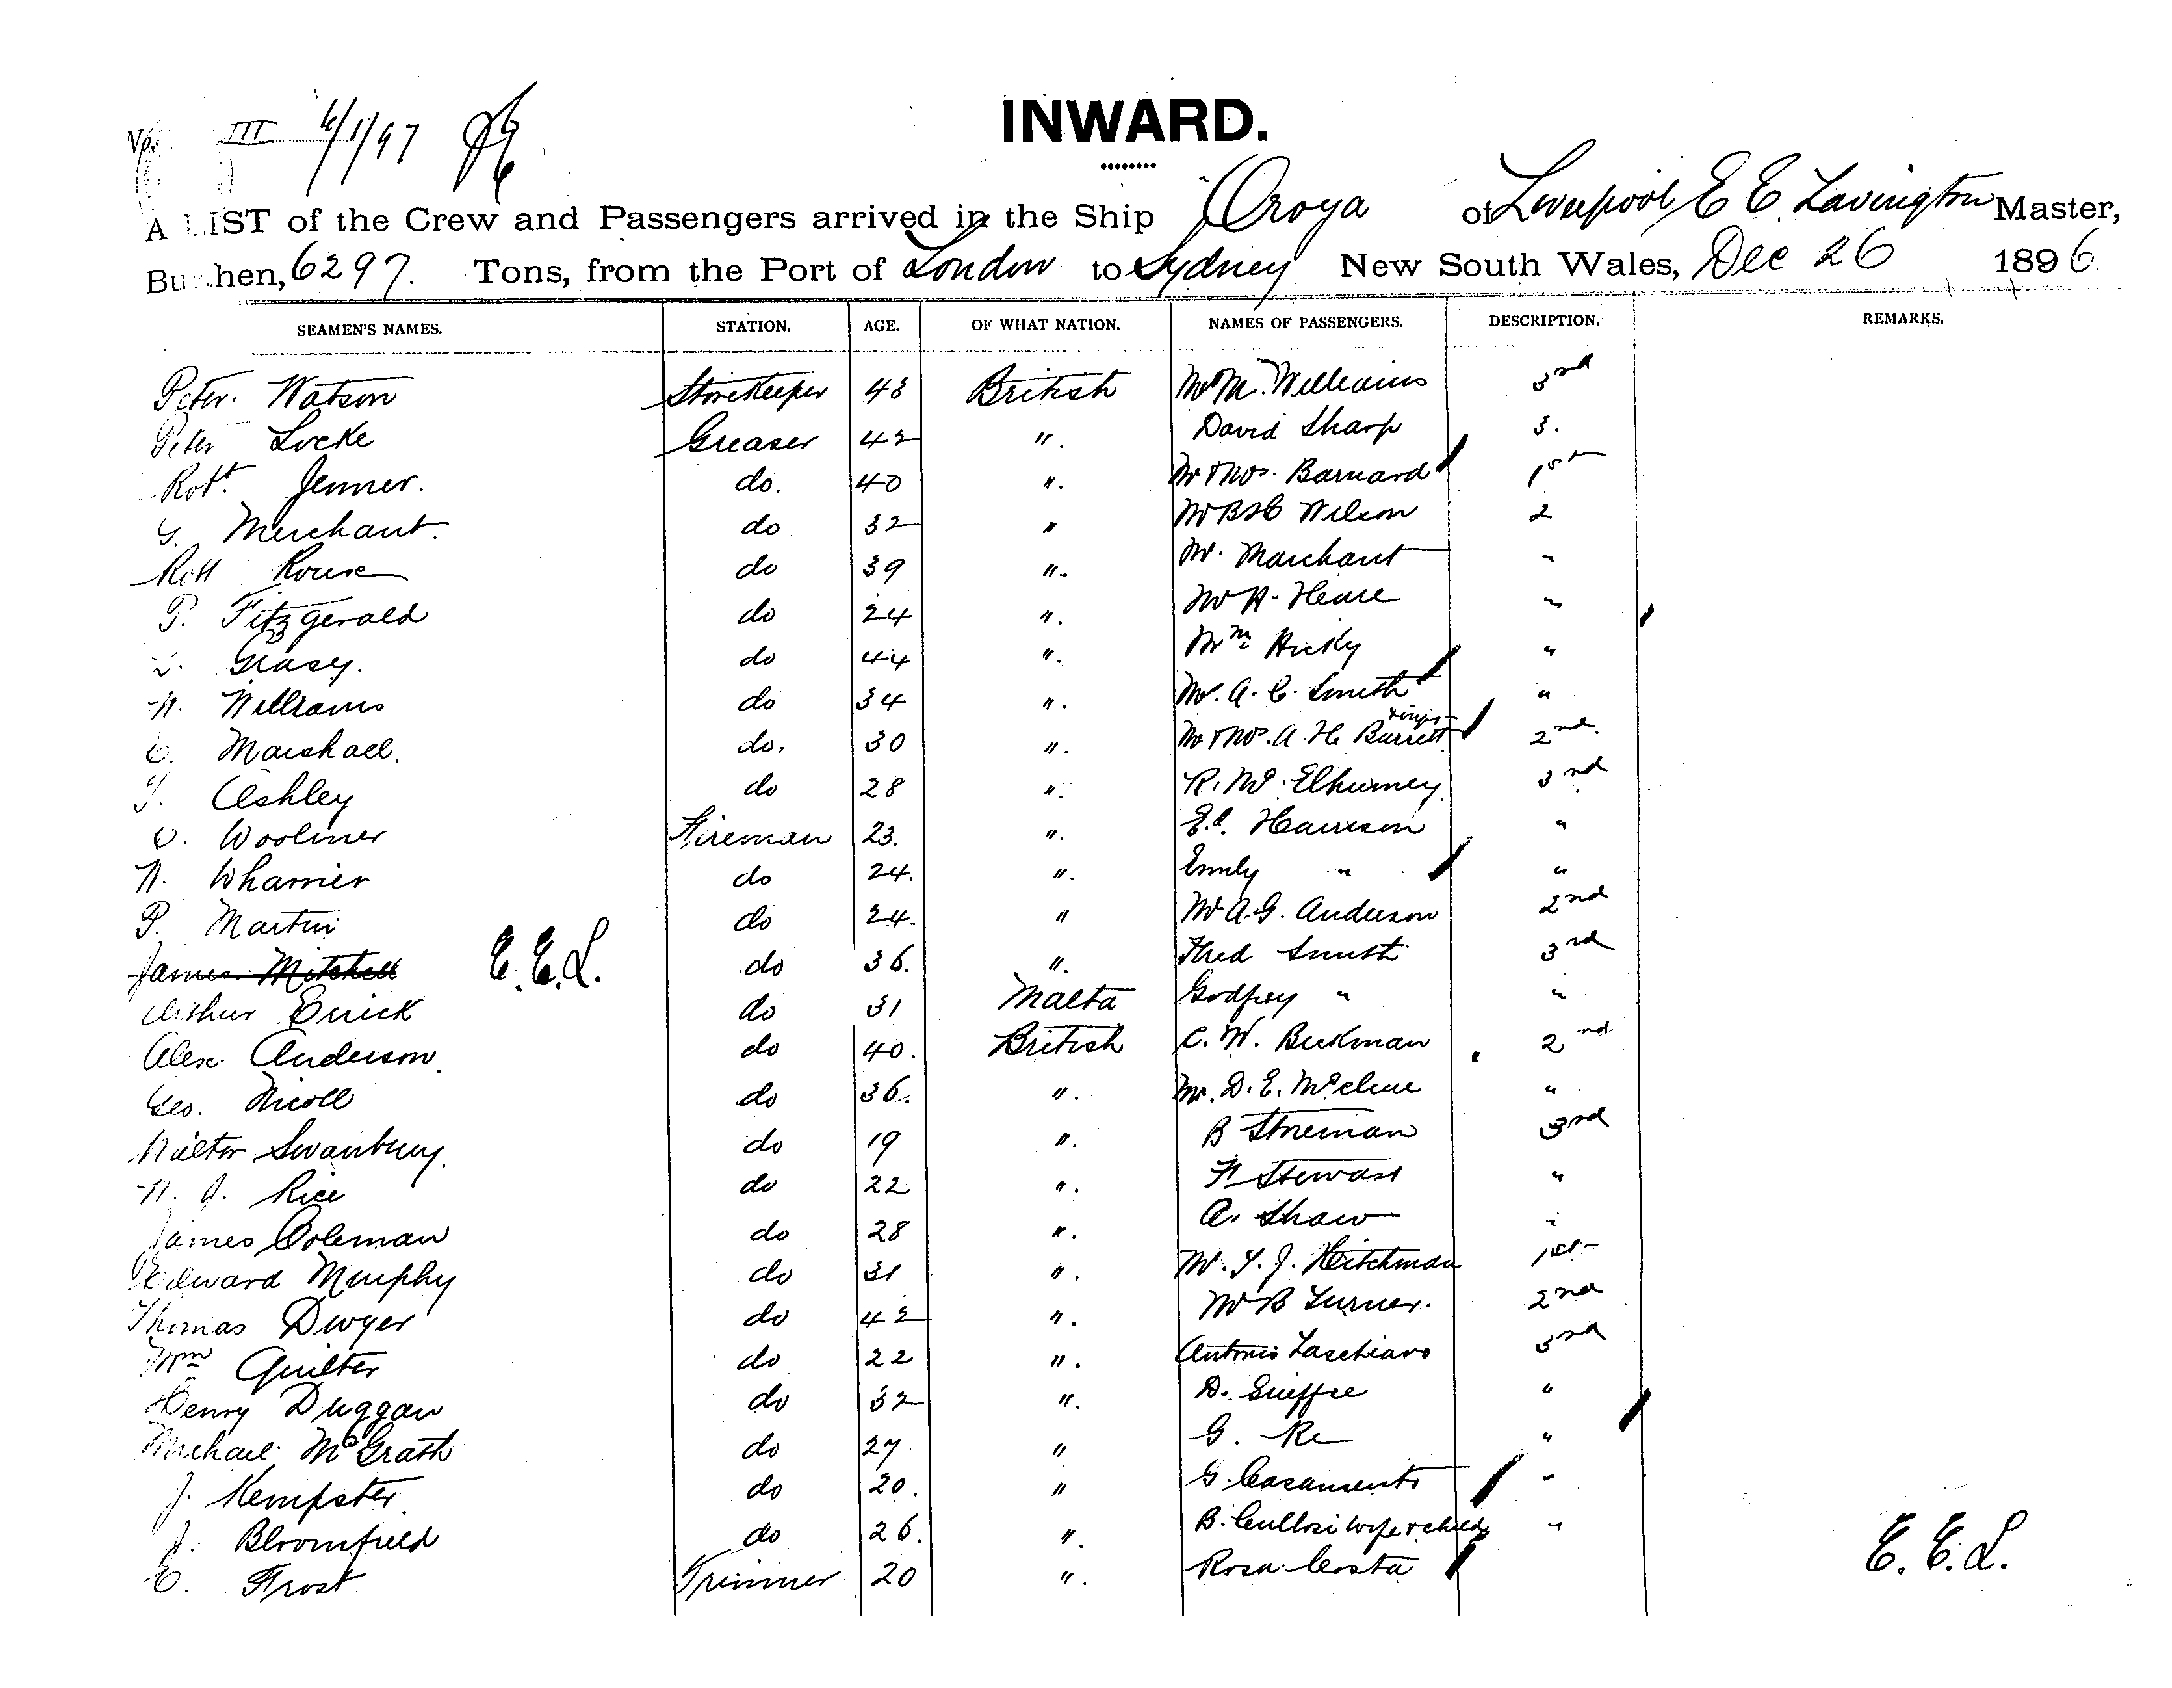 III 6/1/97
INWARD.
A LIST of the Crew and Passengers arrived in the Ship Oroya of Liverpool E E Lavington Master,
Burthen, 6297. Tons, from the Port of London to Sydney New South Wales, Dec 26 1896
SEAMEN'S NAMES. STATION. AGE. OF WHAT NATION. NAMES OF PASSENGERS. DESCRIPTION. REMARKS.
Peter Watson Storekeeper 43 British Mr M. Williams 3rd
Peter Locke Greaser 42 ". David Sharp 3.
Robt. Jenner. do. 40 ". Mr & Mrs. Barnard 1st
G. Merchant. do 32 " Mr Wilson 2
Robt Rouse do 39 ". Mr. Marchant "
P. Fitzgerald do 24 ". Mr H. "
Grasey. do 44 ". Wm Hicky "
W. Williams do 34 ". Mr. A. C. Smith "
C. Marshall. do. 30 ". Mr & Mrs. A. H. Barrett 2nd.
Ashley do 28 ". R. Mc. 3rd
Woolmer Fireman 23. ". E.C. Harrison "
W. Wharrier do 24. ". Emily " "
P. Martin do 24. " Mr A.G. Anderson 2nd
James Mitchell E.E.L. do 36. ". Fred Smith 3rd
Arthur do 31 Malta Godfrey " "
Alex Anderson. do 40. British C. W. Beekman 2nd
Geo. Nicoll do 36. ". Mr. D. E. McClure "
Walter Swanbury. do 19 ". B 3rd
W. J. Rice do 22 ". F Stewart "
James Coleman do 28 ". A. Shaw "
Edward Murphy do 31 ". Mr. T. J. Hitchman 1st
Thomas Dwyer do 42 ". Mr B Turner. 2nd
Wm Quilter do 22 ". Antonio 3rd
Henry Duggan do 32 ". D. "
Michael McGrath do 27 " G. Re "
J. Kempster do 20. " G. Casamento "
J. Bloomfield do 26. ". B. wife & child "
E. Frost Trimmer 20 ". Rosa Costa
E. E. L.